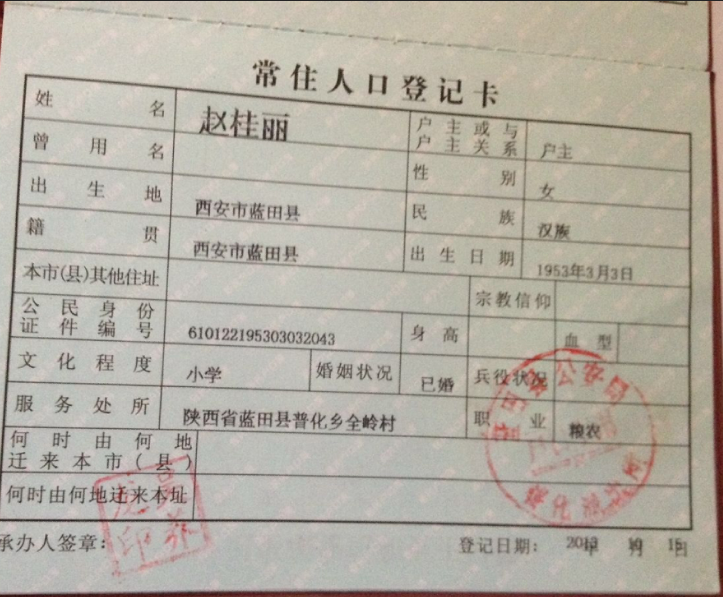 常住人口登记卡
姓名 赵桂丽 户主或与户主关系 户主
曾用名 性别 女
出生地 西安市蓝田县 民族 汉族
籍贯 西安市蓝田县 出生日期 1953年3月3日
本市(县)其他住址 宗教信仰
公民身份证件编号 610122195303032043 身高 血型
文化程度 小学 婚姻状况 已婚 兵役状况
服务处所 陕西省蓝田县普化乡全岭村 职业 粮农
何时由何地迁来本市(县)
何时由何地迁来本址
承办人签章: 登记日期: 年 月 日